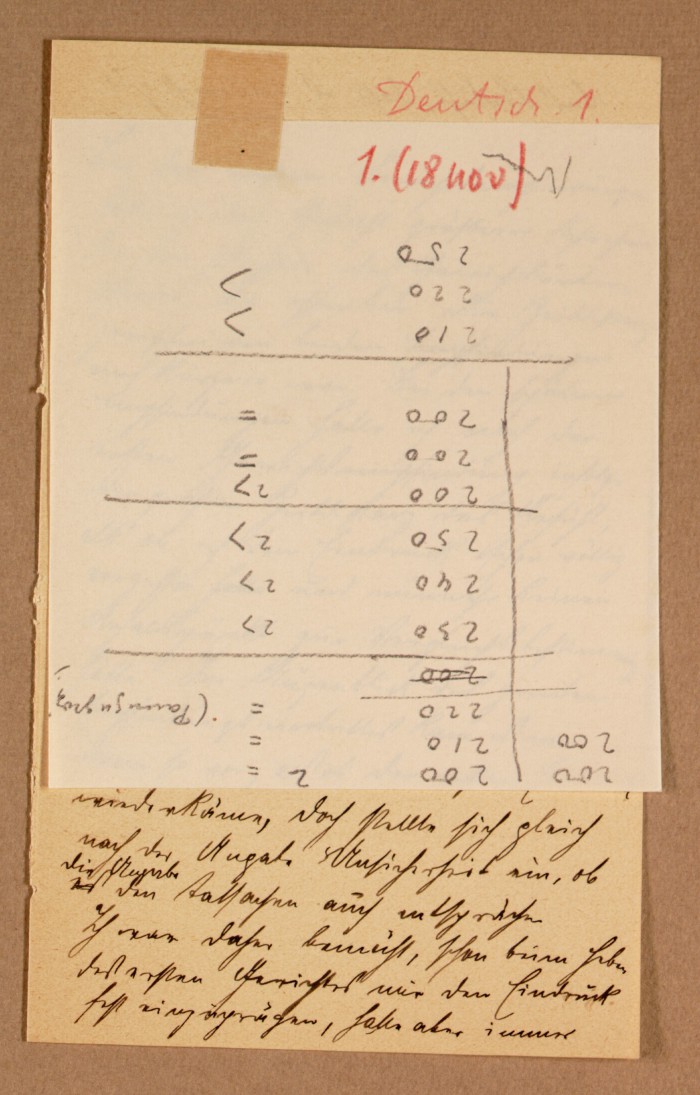 Deutsch. 1.
1. (18 nov)
200 200 2 =
200 210 =
220 =
200
230 2>
240 2>
250 2>
200 2>
200 =
200 =
210 <
220 <
250
wiederkäme, doch stellte sich gleich
nach der Angabe Unsicherheit ein, ob
die Angabe
den Tatsachen auch entspräche
Ich war daher bemüht, schon beim Heben
des ersten Gewichtes mir den Eindruck
fest einzuprägen, hatte aber immer